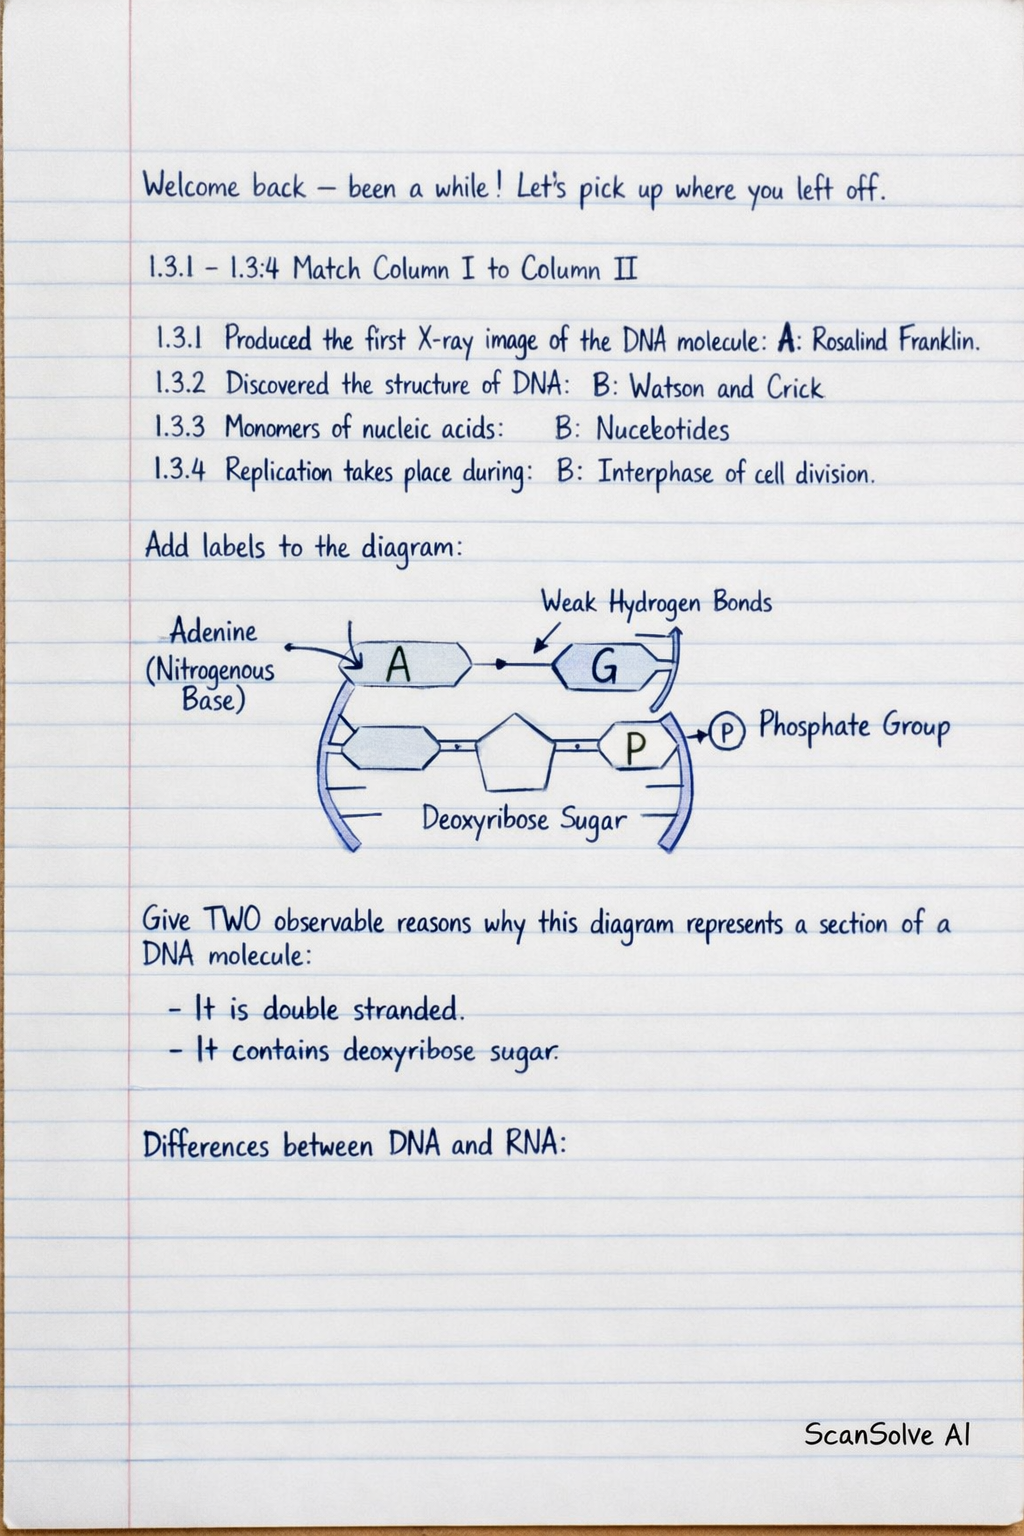 Welcome back – been a while! Let's pick up where you left off.
1.3.1 – 1.3:4 Match Column I to Column II
1.3.1 Produced the first X-ray image of the DNA molecule: A: Rosalind Franklin.
1.3.2 Discovered the structure of DNA: B: Watson and Crick
1.3.3 Monomers of nucleic acids: B: Nucekotides
1.3.4 Replication takes place during: B: Interphase of cell division.
Add labels to the diagram:
Weak Hydrogen Bonds
Adenine
(Nitrogenous
Base)
A
G
P
P
Phosphate Group
Deoxyribose Sugar
Give TWO observable reasons why this diagram represents a section of a
DNA molecule:
- It is double stranded.
- It contains deoxyribose sugar.
Differences between DNA and RNA:
ScanSolve AI